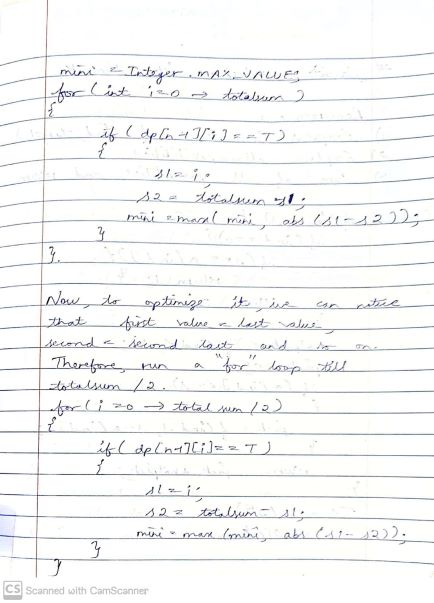 mini = Integer.MAX_VALUE;
for ( int i=0 → totalsum )
{
if ( dp[n-1][i] == T )
{
s1 = i;
s2 = totalsum - s1;
mini = max( mini, abs (s1-s2));
}
}.
Now, to optimize it, we can notice
that first value = last value,
second = second last and so on.
Therefore, run a "for" loop till
totalsum /2.
for ( i =0 → total sum /2)
{
if ( dp[n-1][i] == T )
{
s1 = i;
s2 = totalsum - s1;
mini = max (mini, abs (s1 - s2));
}
}
CS Scanned with CamScanner